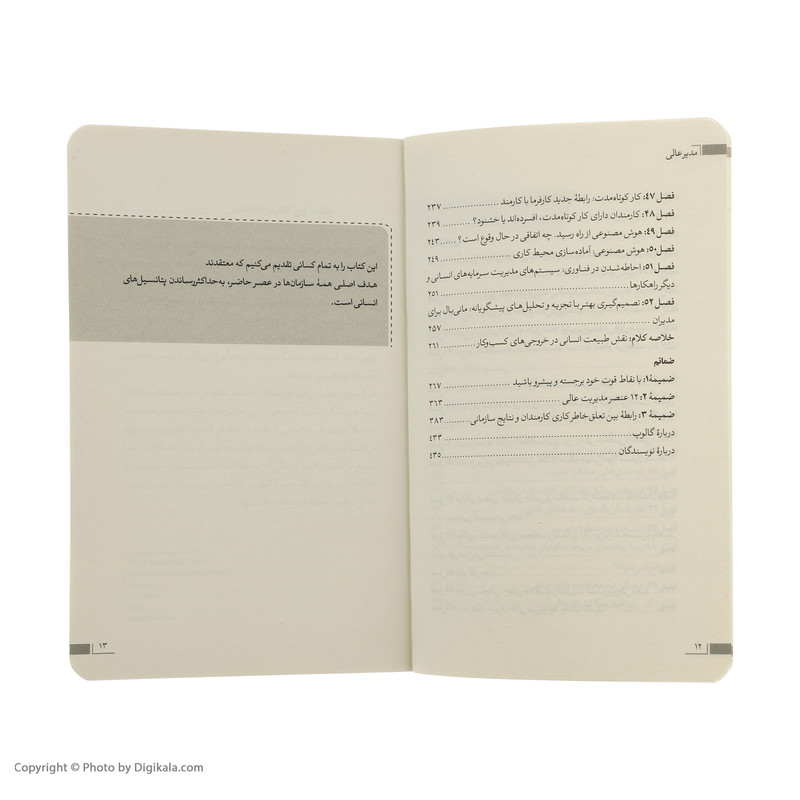 مدیر عالی
فصل ۴۷: کار کوتاه‌مدت: رابطهٔ جدید کارفرما با کارمند .................... ۲۳۷
فصل ۴۸: کارمندان دارای کار کوتاه‌مدت، افسرده‌اند یا خشنود؟ .......... ۲۳۹
فصل ۴۹: هوش مصنوعی از راه رسید. چه اتفاقی در حال وقوع است؟ ..... ۲۴۳
فصل ۵۰: هوش مصنوعی: آماده‌سازی محیط کاری .................... ۲۴۹
فصل ۵۱: احاطه‌شدن در فناوری: سیستم‌های مدیریت سرمایه‌های انسانی و
دیگر راهکارها .................... ۲۵۱
فصل ۵۲: تصمیم‌گیری بهتر با تجزیه و تحلیل‌های پیشگویانه: مانی‌بال برای
مدیران .................... ۲۵۷
خلاصه کلام: نقش طبیعت انسانی در خروجی‌های کسب‌وکار .......... ۲۶۱
ضمائم
ضمیمهٔ ۱: با نقاط قوت خود برجسته و پیشرو باشید .................... ۲۶۷
ضمیمهٔ ۲: ۱۲ عنصر مدیریت عالی .................... ۳۶۳
ضمیمهٔ ۳: رابطهٔ بین تعلق‌خاطر کاری کارمندان و نتایج سازمانی .......... ۳۸۳
دربارهٔ گالوپ .................... ۴۳۳
دربارهٔ نویسندگان .................... ۴۳۵
۱۲
این کتاب را به تمام کسانی تقدیم می‌کنیم که معتقدند
هدف اصلی همهٔ سازمان‌ها در عصر حاضر، به‌حداکثررساندن پتانسیل‌های
انسانی است.
۱۳
Copyright © Photo by Digikala.com